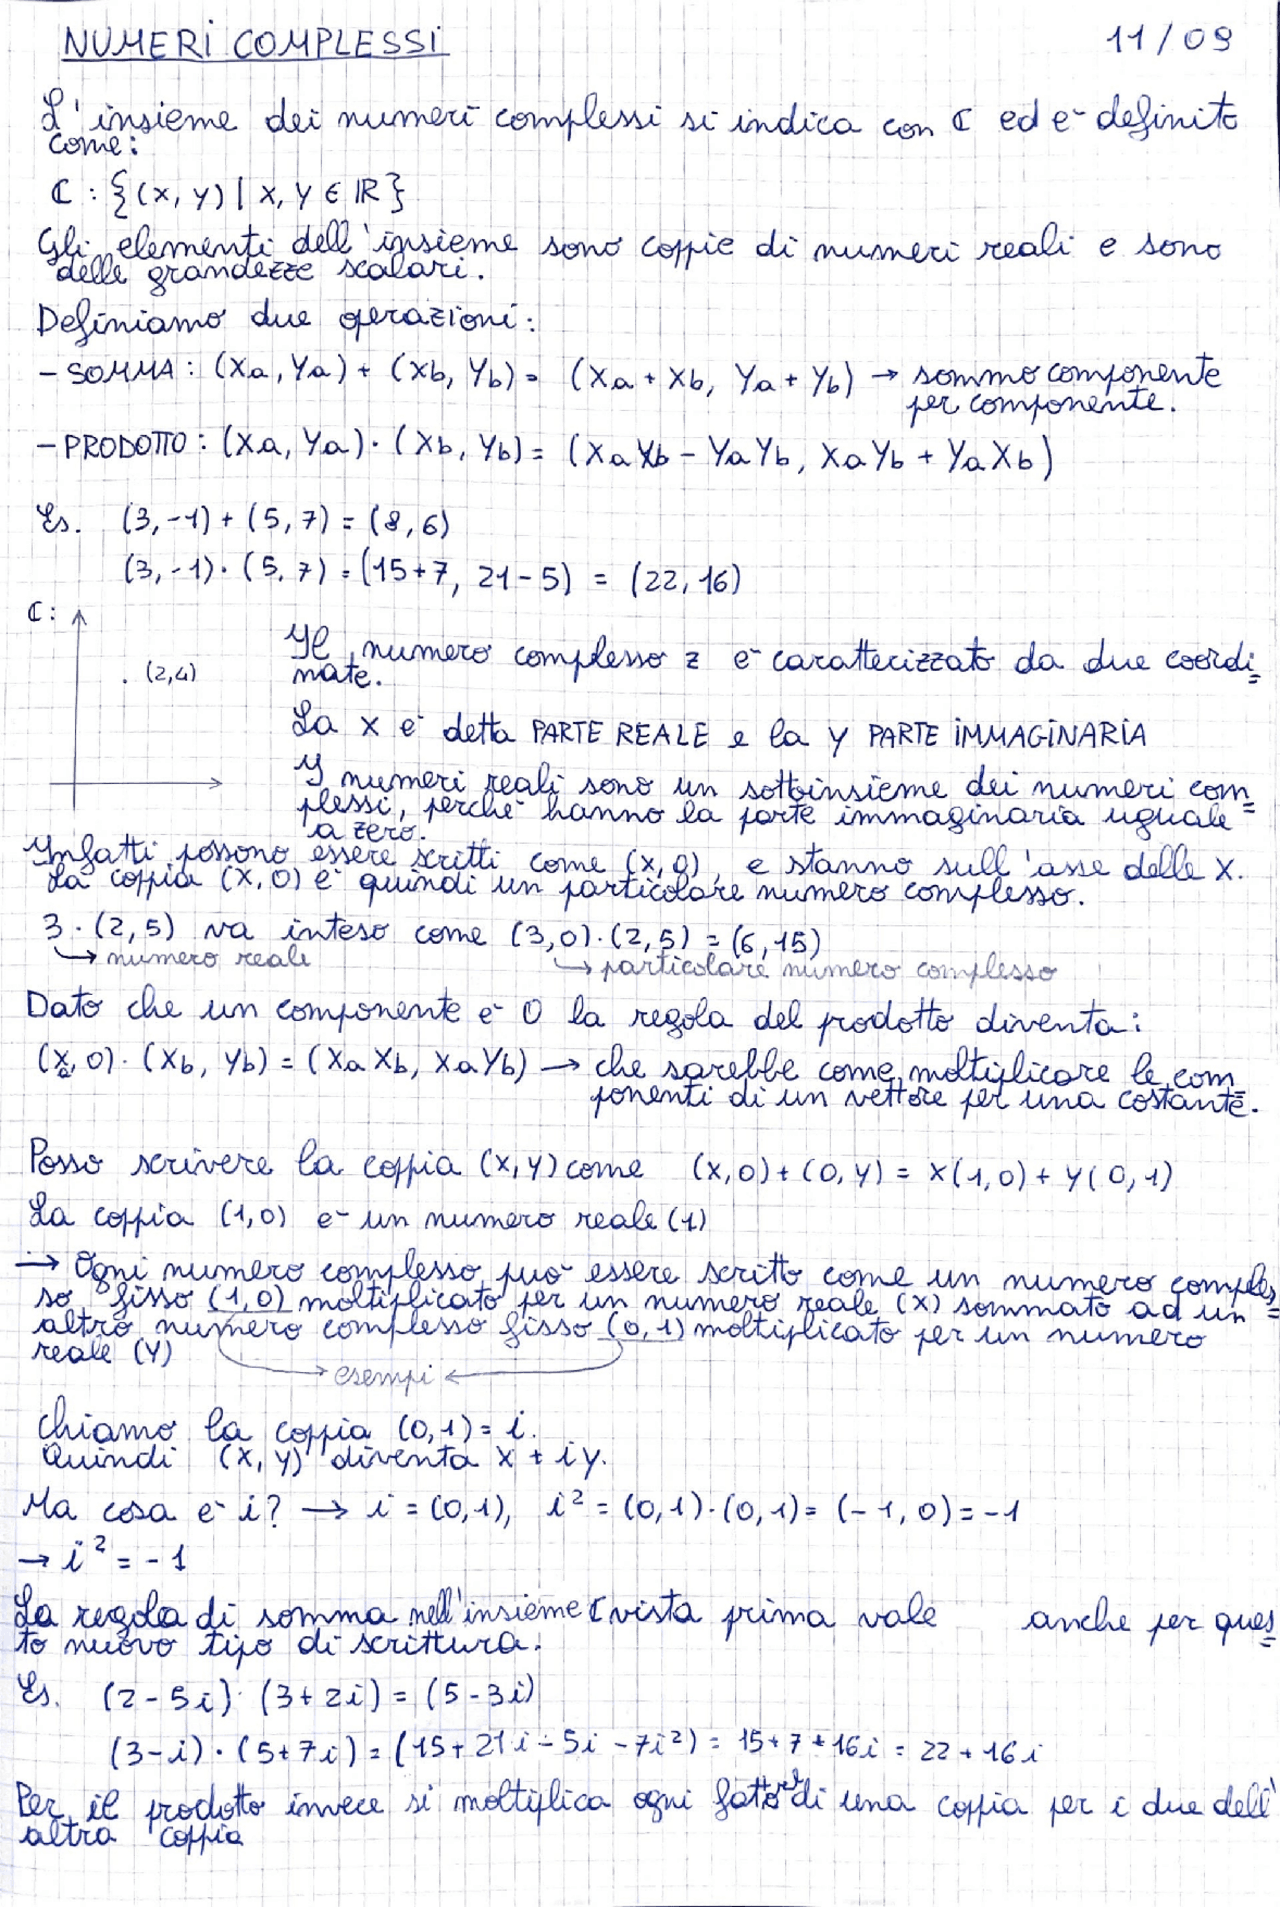 NUMERI COMPLESSI 11/09
L'insieme dei numeri complessi si indica con ℂ ed è definito
come:
ℂ : {(x, y) | x, y ∈ ℝ}
Gli elementi dell'insieme sono coppie di numeri reali e sono
delle grandezze scalari.
Definiamo due operazioni:
- SOMMA: (Xa, Ya) + (Xb, Yb) = (Xa + Xb, Ya + Yb) → sommo componente
per componente.
- PRODOTTO: (Xa, Ya) · (Xb, Yb) = (XaXb - YaYb, XaYb + YaXb)
Es. (3, -1) + (5, 7) = (8, 6)
(3, -1) · (5, 7) = (15+7, 21-5) = (22, 16)
ℂ:
. (2,4)
Il numero complesso z è caratterizzato da due coordi=
nate.
La x è detta PARTE REALE e la y PARTE IMMAGINARIA
I numeri reali sono un sottoinsieme dei numeri com=
plessi, perchè hanno la parte immaginaria uguale
a zero.
Infatti possono essere scritti come (x, 0), e stanno sull'asse delle x.
La coppia (x, 0) è quindi un particolare numero complesso.
3 · (2, 5) va inteso come (3, 0) · (2, 5) = (6, 15)
↳ numero reale ↳ particolare numero complesso
Dato che un componente è 0 la regola del prodotto diventa:
(Xa, 0) · (Xb, Yb) = (XaXb, XaYb) → che sarebbe come moltiplicare le com=
ponenti di un vettore per una costante.
Posso scrivere la coppia (x, y) come (x, 0) + (0, y) = x(1, 0) + y(0, 1)
La coppia (1, 0) è un numero reale (1)
→ Ogni numero complesso può essere scritto come un numero comples=
so fisso (1, 0) moltiplicato per un numero reale (x) sommato ad un
altro numero complesso fisso (0, 1) moltiplicato per un numero
reale (y)
→ esempi ←
Chiamo la coppia (0, 1) = i.
Quindi (x, y) diventa x + iy.
Ma cosa è i? → i = (0, 1), i² = (0, 1) · (0, 1) = (-1, 0) = -1
→ i² = -1
La regola di somma nell'insieme ℂ vista prima vale anche per ques=
to nuovo tipo di scrittura.
Es. (2 - 5i) · (3 + 2i) = (5 - 3i)
(3 - i) · (5 + 7i) = (15 + 21i - 5i - 7i²) = 15 + 7 + 16i = 22 + 16i
Per il prodotto invece si moltiplica ogni fattore di una coppia per i due dell'
altra coppia